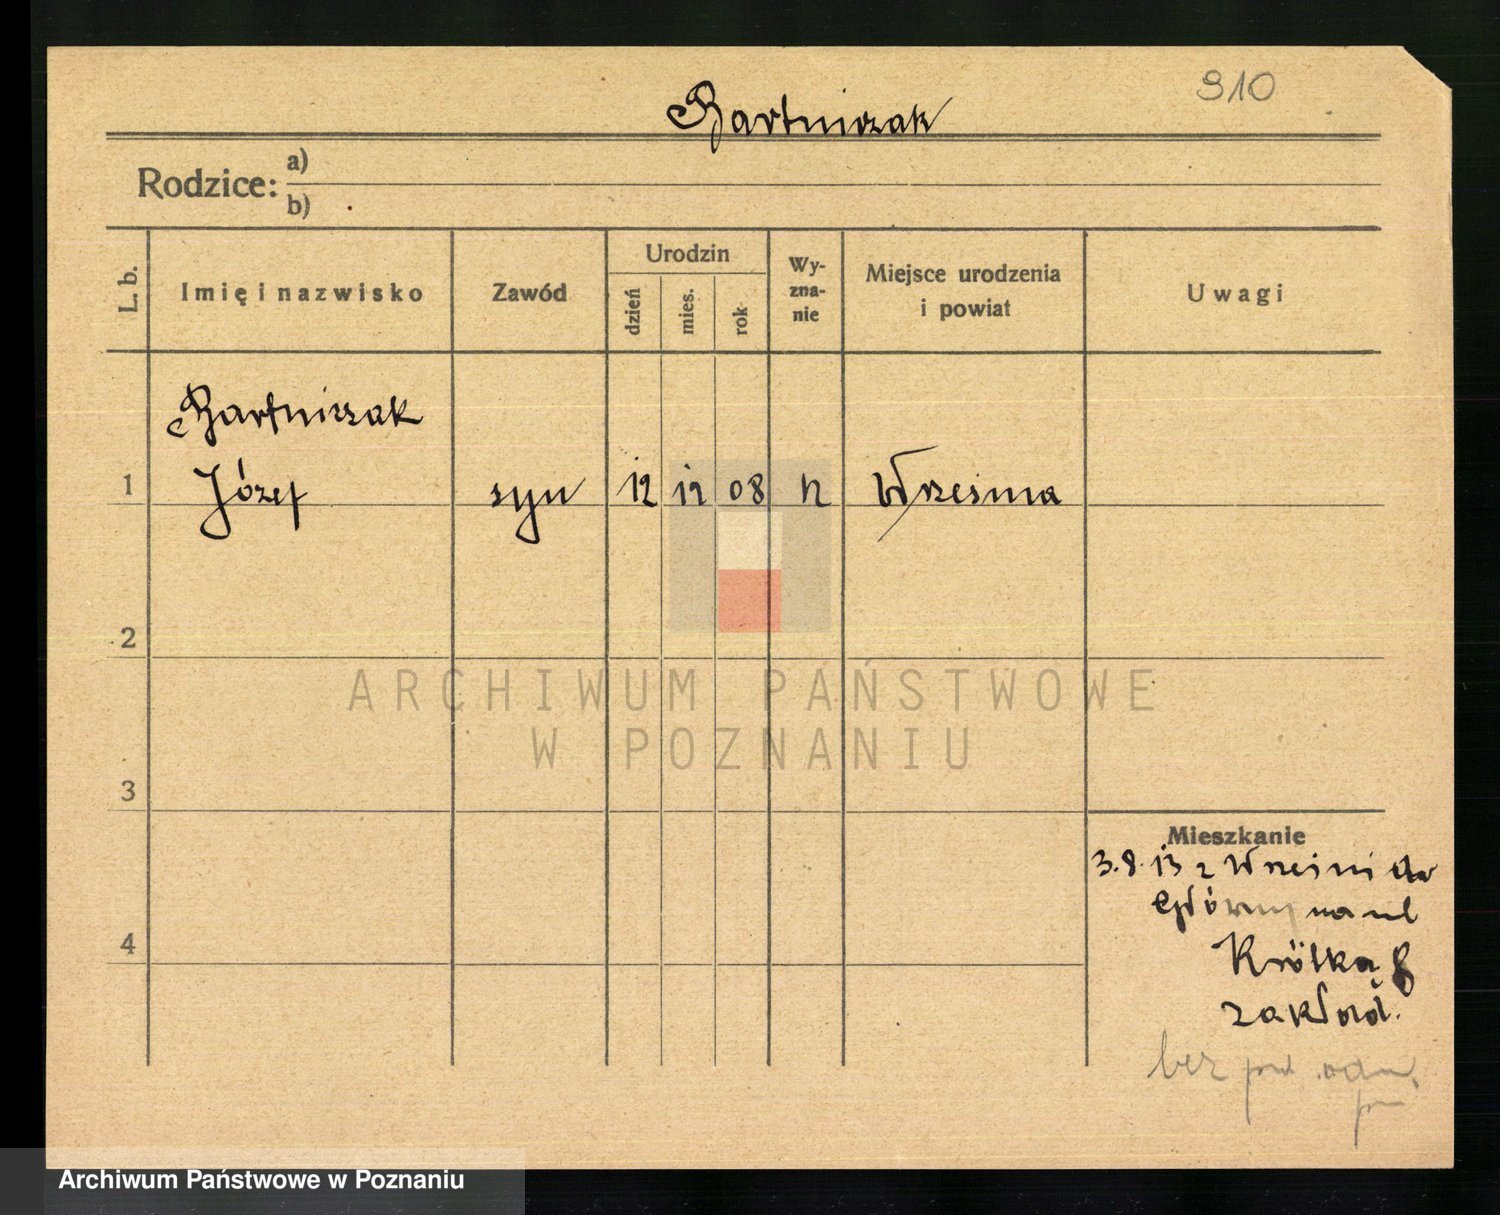 910
Bartniczak
Rodzice: a)
b)
L. b.
Imię i nazwisko
Zawód
Urodzin
dzień
mies.
rok
Wy-
zna-
nie
Miejsce urodzenia
i powiat
Uwagi
Bartniczak
1 Józef syn 12 12 08 Września
2
3
4
Mieszkanie
3.8.13 z Wrześni do
Główny na ul
Krótką 8
zakład.
bez
ARCHIWUM PAŃSTWOWE
W POZNANIU
Archiwum Państwowe w Poznaniu